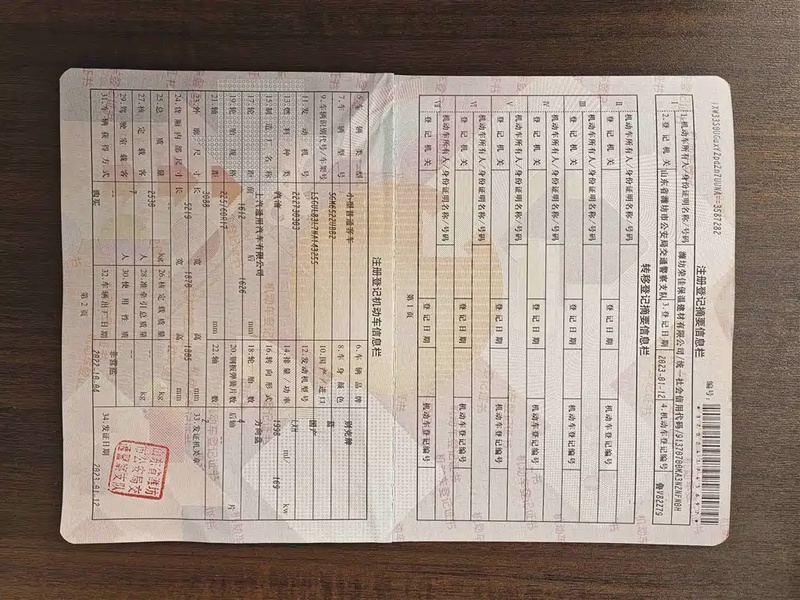 注册登记摘要信息栏
编号:
Ⅰ 1.机动车所有人/身份证明名称/号码 潍坊荣佳保温建材有限公司/统一社会信用代码/
2.登记机关 山东省潍坊市公安局交通警察支队 3.登记日期 2023-01-12 4.机动车登记编号 鲁V02Z79
转移登记摘要信息栏
Ⅱ 机动车所有人/身份证明名称/号码
登记机关 登记日期 机动车登记编号
Ⅲ 机动车所有人/身份证明名称/号码
登记机关 登记日期 机动车登记编号
Ⅳ 机动车所有人/身份证明名称/号码
登记机关 登记日期 机动车登记编号
Ⅴ 机动车所有人/身份证明名称/号码
登记机关 登记日期 机动车登记编号
Ⅵ 机动车所有人/身份证明名称/号码
登记机关 登记日期 机动车登记编号
Ⅶ 机动车所有人/身份证明名称/号码
登记机关 登记日期 机动车登记编号
第1页
注册登记机动车信息栏
5.车辆类型 小型普通客车 6.车辆品牌 别克牌
7.车辆型号 8.车身颜色 蓝
9.车辆识别代号/车架号 10.国产/进口 国产
11.发动机号 222730303 12.发动机型号 LXH
13.燃料种类 汽油 14.排量/功率 1998 ml/ 169 kw
15.制造厂名称 上汽通用汽车有限公司 16.转向形式 方向盘
17.轮距 前 1612 后 1626 mm 18.轮胎数 4
19.轮胎规格 225/60R17 20.钢板弹簧片数 后 片
21.轴距 3088 mm 22.轴数 2
23.外廓尺寸 长 5219 宽 1878 高 1805 mm 33.发证机关章
24.货厢内部尺寸 长 宽 高 mm
25.总质量 2530 kg 26.核定载质量 kg
27.核定载客 7 人 28.准牵引总质量 kg
29.驾驶室载客 人 30.使用性质 非营运
31.车辆获得方式 购买 32.车辆出厂日期 34.发证日期 2023-01-12
第2页